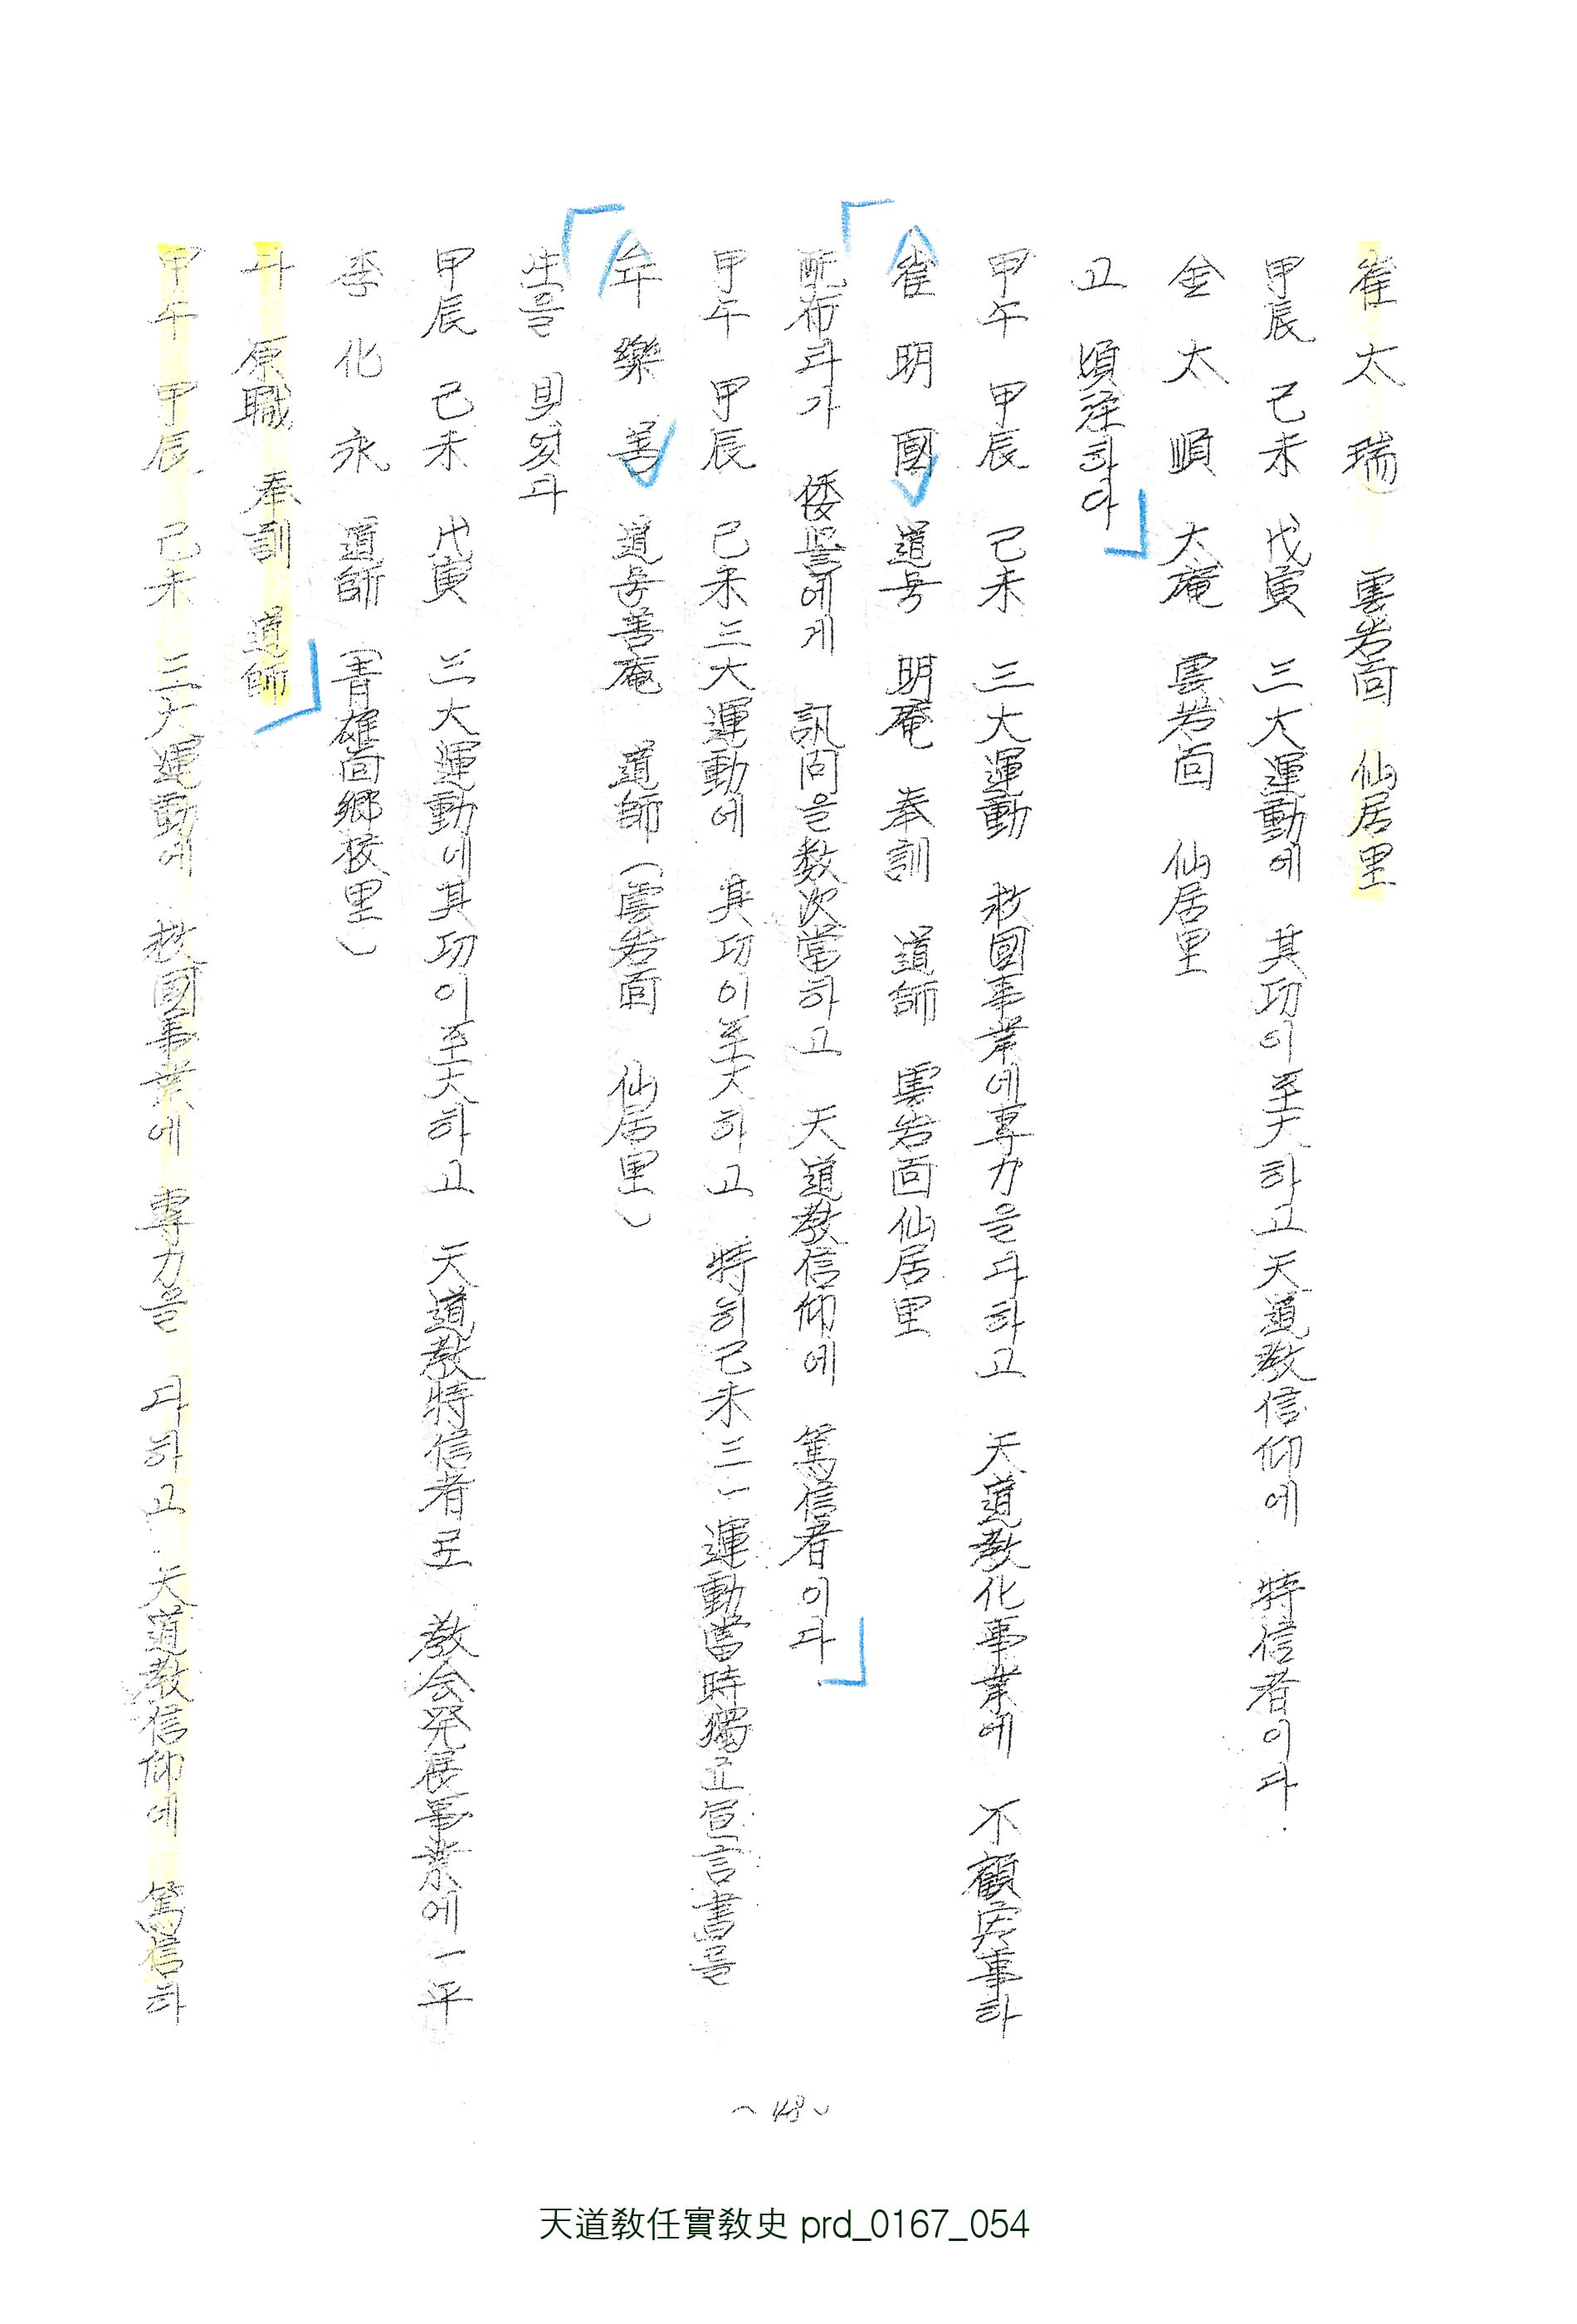 崔太瑞 雲岩面 仙居里
甲辰 己未 戊寅 三大運動에 其功이至大하고天道敎信仰에 特信者이다.
金太順 大菴 雲岩面 仙居里
고 傾注하야
甲午 甲辰 己未 三大運動 救國事業에專力을다하고 天道敎化事業에 不顧家事하
崔明國 道号 明菴 奉訓 道師 雲岩面仙居里
配布타가 倭警에게 訊問을数次當하고 天道敎信仰에 篤信者이다
甲午 甲辰 己未三大運動에 其功이至大하고 特히己未三一運動當時獨立宣言書를
牟樂善 道号善菴 道師(雲岩面 仙居里)
生을 밋첫다
甲辰 己未 戊寅 三大運動에其功이至大하고 天道敎特信者로 敎会発展事業에一平
李化永 道師(青雄面鄕校里)
斗 原職 奉訓 道師
甲午 甲辰 己未 三大運動에 救國事業에 專力을 다하고 天道敎信仰에 篤信하
~48~
天道敎任實敎史 prd_0167_054